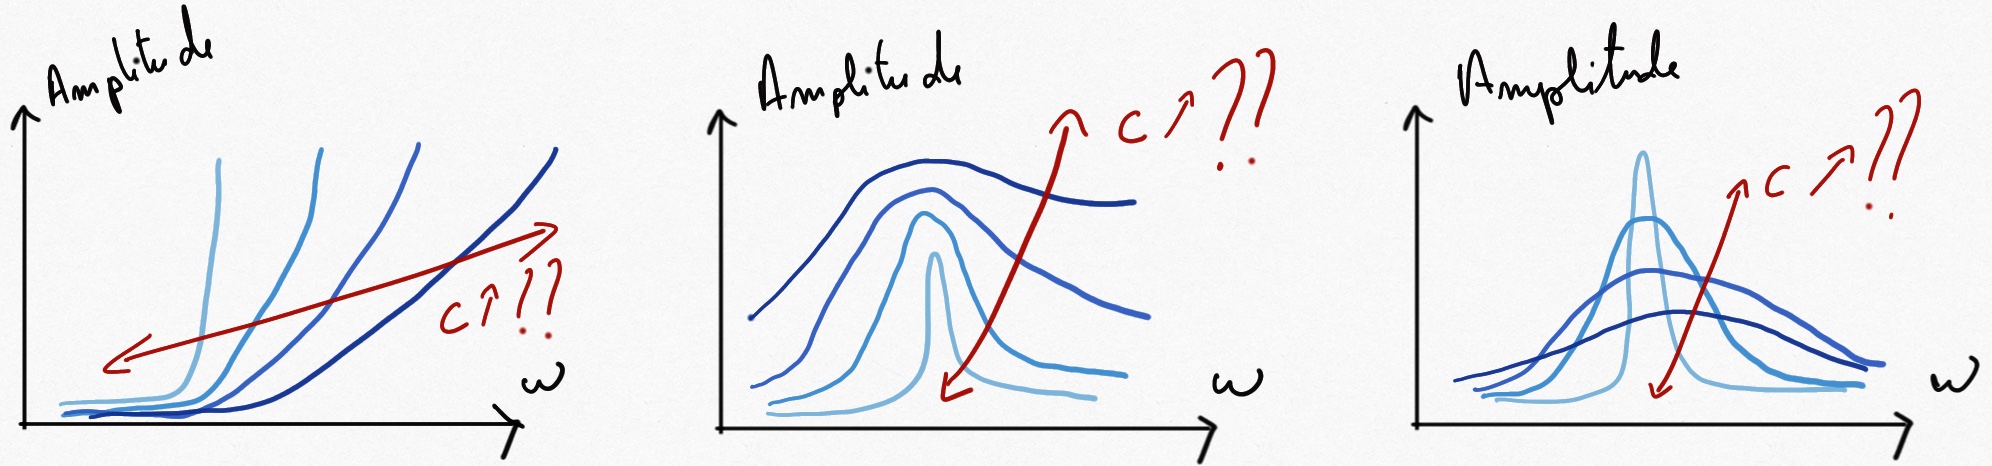 Amplitude
c ↑ ??
ω
Amplitude
c ↗ ??
ω
Amplitude
c ↗ ??
ω